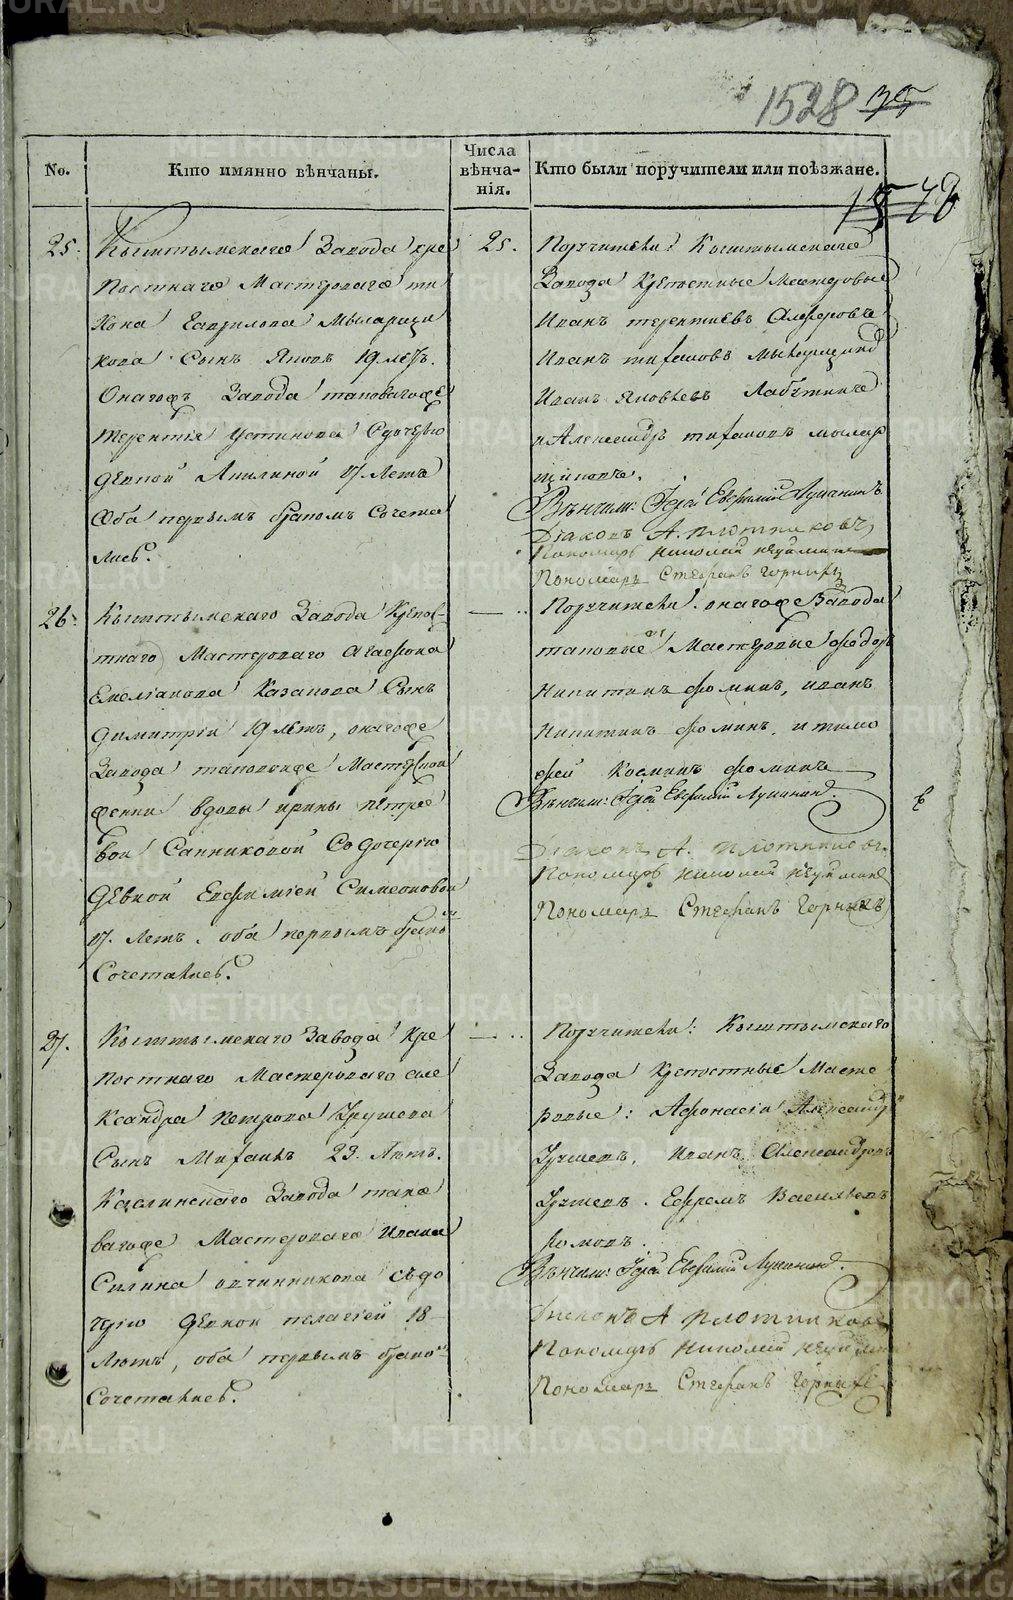 METRIKI.GASO-URAL.RU
1528 35
1528
No.
Кто имянно вѣнчаны.
Числа вѣнча-нія.
Кто были поручители или поѣзжане.
25.
Кыштымскаго Завода кре
постнаго Мастероваго ти
хона Гаврилова Мыларщи
кова Сынъ Яковъ 19 лѣтъ.
Онагожъ Завода таковагоже
терентія Устинова Сдочерью
девкой Акилиной 17 Летъ
Оба первымъ бракомъ Сочета
лись.
25.
Поручители: Кыштымскаго
Завода Крепостные Мастеровые
Иванъ терентиевъ
Иванъ тихановъ мыларщиковъ
Иванъ Яковлевъ
и Александръ тихановъ мылар
щиковъ.
Вѣнчали: Іерей Евфимій Лукининъ
Діаконъ А. плотниковъ
Пономарь николай
Пономарь Стефанъ Горныхъ
26.
Кыштымскаго Завода Крепос-
тнаго Мастероваго Агафона
Емелианова Казакова Сынъ
Димитрій 19 лѣтъ, онагоже
Завода таковойже Мастерской
женки вдовы ирины петро
вой Санниковой Содочерію
Девкой Евфиміей Симеоновой
17. Летъ. оба первымъ бракомъ
Сочетались.
Поручители: онагоже Завода
таковые Мастеровые федоръ
Никитинъ фоминъ, иванъ
Никитинъ фоминъ, и тимо
фей Косминъ фоминъ
Вѣнчали: Іерей Евфимій Лукинин.
Діаконъ А. плотниковъ.
Пономарь николай
Пономарь Стефанъ Горныхъ
27.
Кыштымскаго Завода Кре
постнаго Мастероваго але
ксандра петрова Хрущева
Сынъ Михаилъ 23. Лѣтъ.
Каслинскаго Завода тако
вагоже Мастероваго Ивана
Силина овчинникова съдо
черію Девкой пелагіей 18
Лѣтъ, оба первымъ бракомъ
Сочетались.
Поручители: Кыштымскаго
Завода Крепостные Масте
ровые: Афонасій Александр
Иванъ Александровъ
Ефремъ Васильевъ
фомовъ.
Вѣнчали: Іерей Евфимій Лукинин.
Діаконъ А плотниковъ
Пономарь Николай
Пономарь Стефанъ Горныхъ